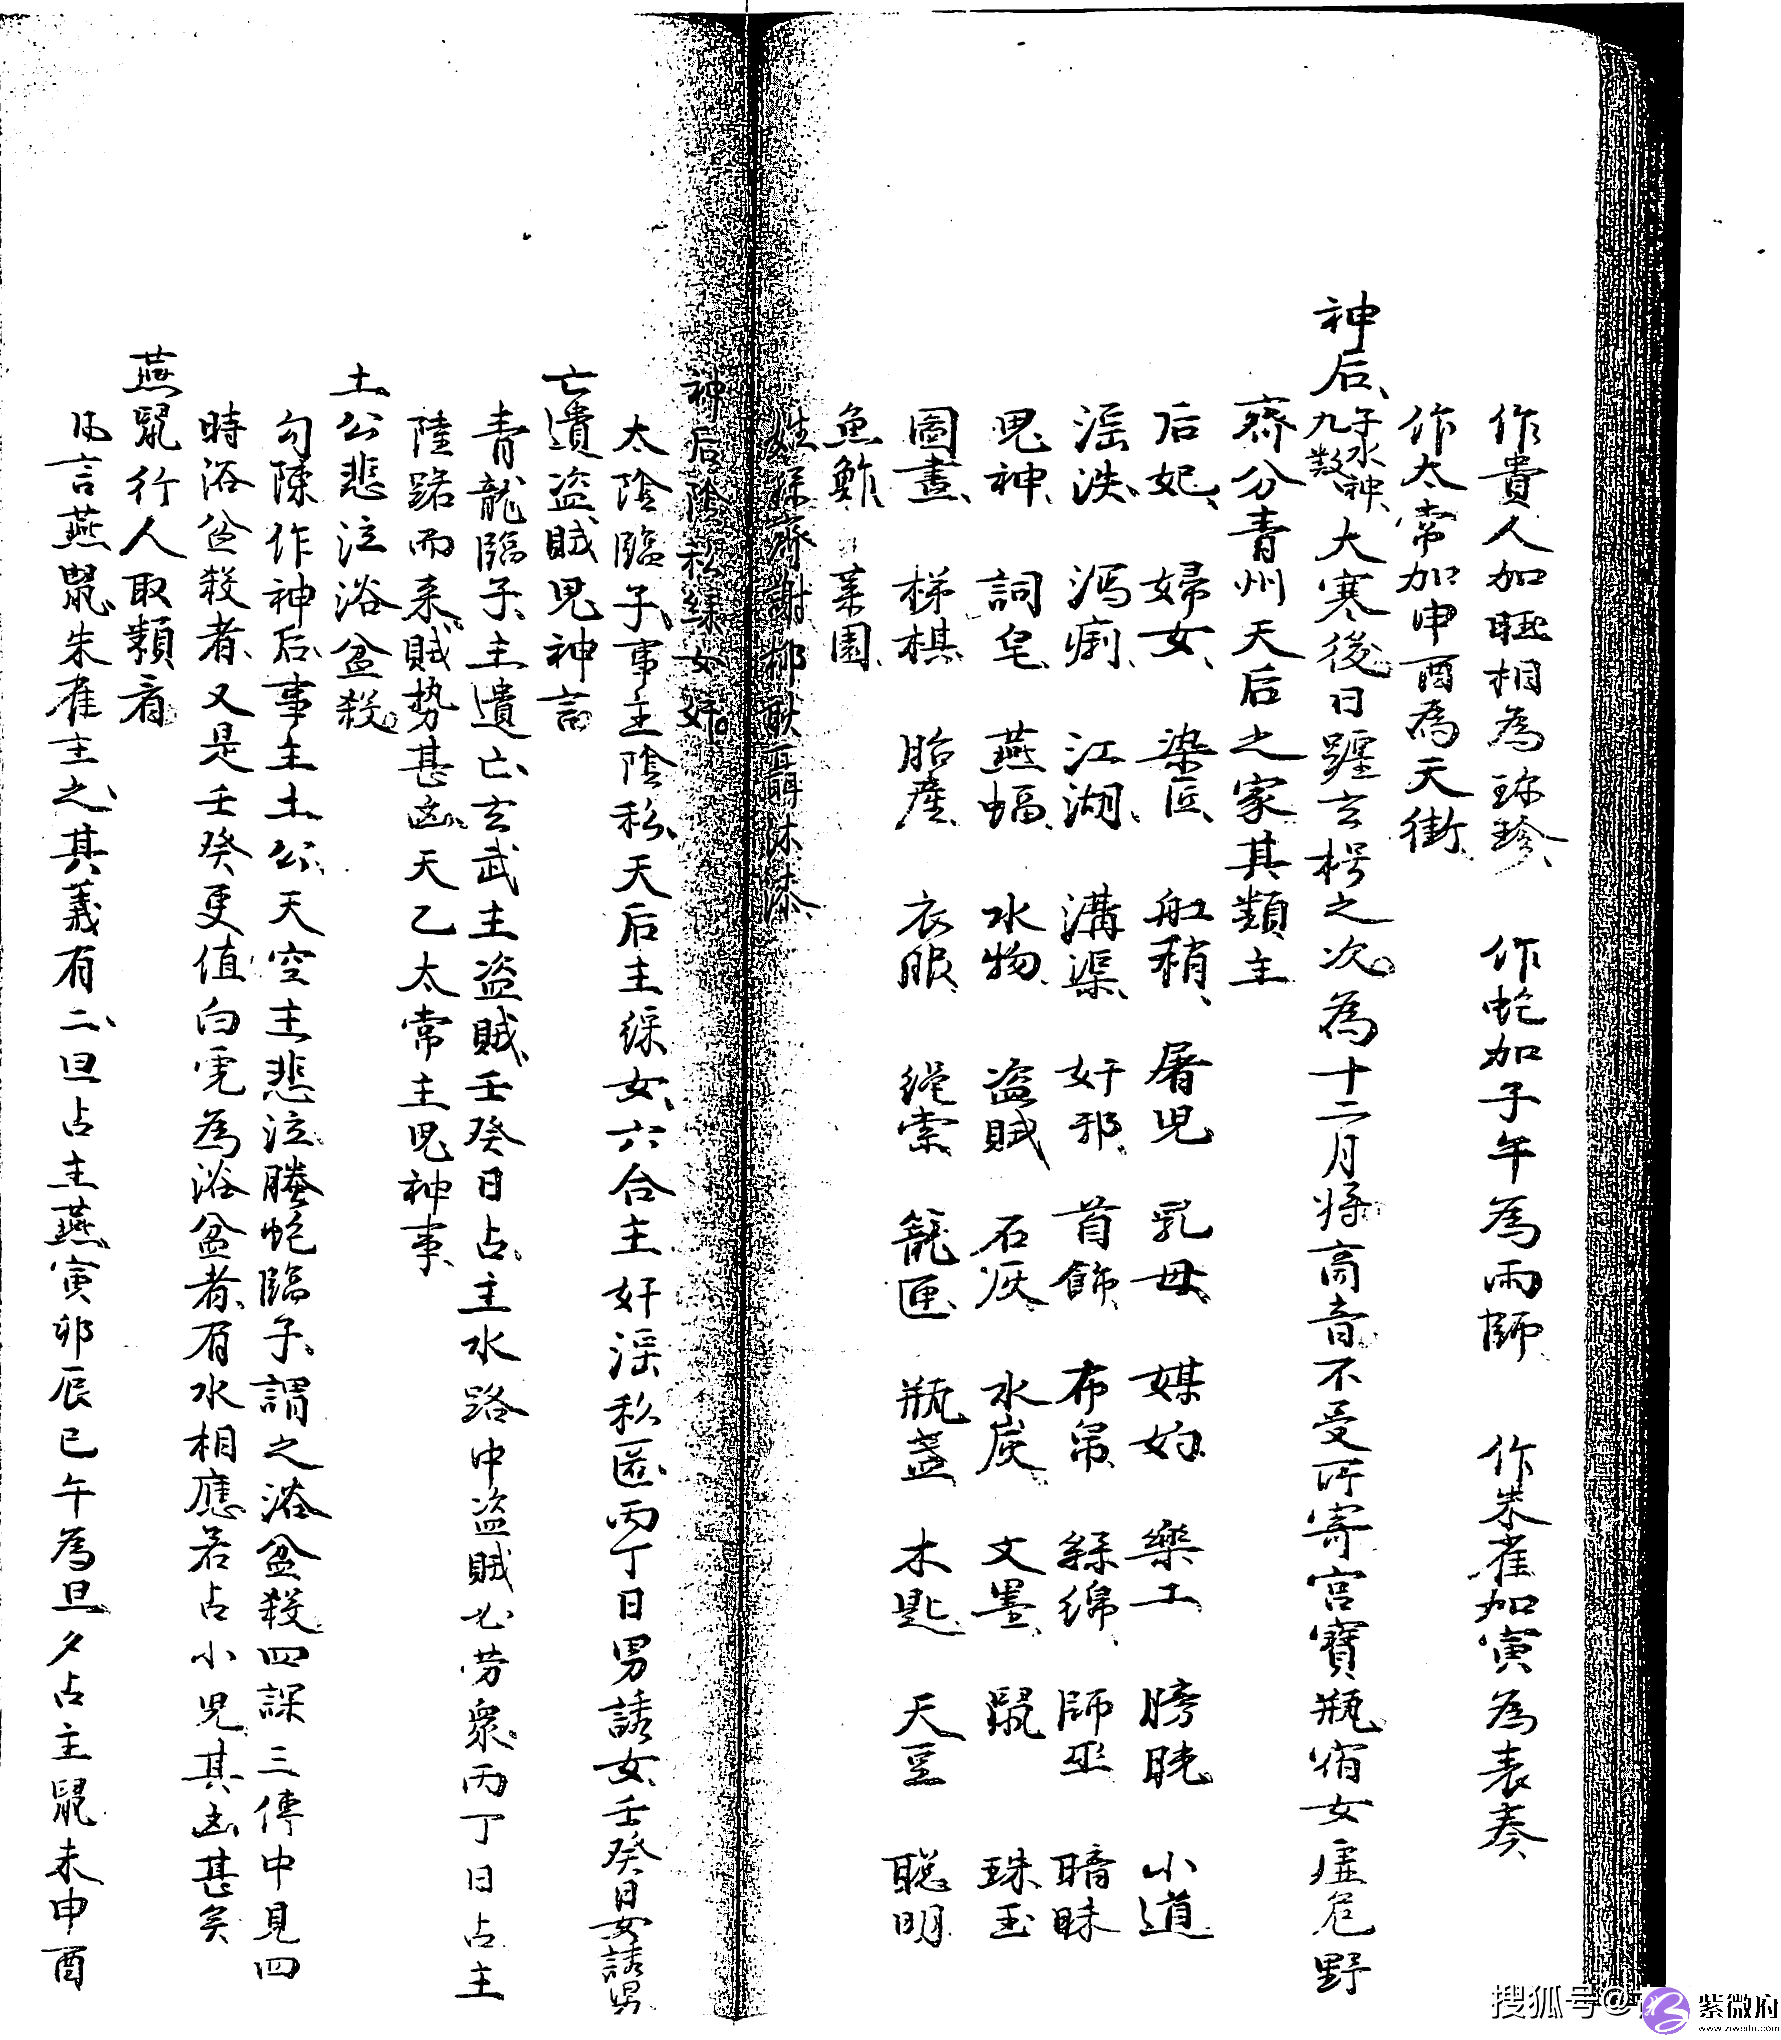 作貴人加𦣱相為珎珍　作虵加子午為雨師　作朱雀加寅為表奏
作太常加申酉為天街
神后子水神九數大寒後日躔玄枵之次為十二月將高音不受所寄宫寶瓶宿女虛危野
齊分青州天后之家其類主
后妃　婦女　染匠　舡稍　屠児　乳母　媒妁　樂工　　小道
滛泆　瀉痢　江湖　溝渠　奸邪　首飾　布帛　絲綿　師巫　暗昧
鬼神　詞皂　燕蝠　水物　盗賊　石灰　水炭　文墨　鼠　珠玉
圖畫　梯棋　胎產　衣服　繩索　籠匣　瓶盞　木匙　天豆　聪明
魚鮓　菜園
姓孫齊謝耿聶沐漆
神后陰私綵女奸
太陰臨子事主陰私天后主綵女六合主奸滛私匿丙丁日男誘女壬癸日女誘男
亡遺盗賊鬼神言
青龍臨子主遺亡玄武主盗賊壬癸日占主水路中盗賊必劳衆丙丁日占主
陸路而来賊势甚凶天乙太常主鬼神事
土公悲泣浴盆殺
勾陳作神后事主土公天空主悲泣螣虵臨子謂之浴盆殺四課三傳中見四
時浴盆殺者又是壬癸更值白虎為浴盆者有水相應若占小児其凶甚矣
燕鼠行人取類看
凡言燕鼠朱雀主之其義有二旦占主燕寅卯辰巳午為旦夕占主鼠未申酉
搜狐号@
紫微府
www.ziweifu.com